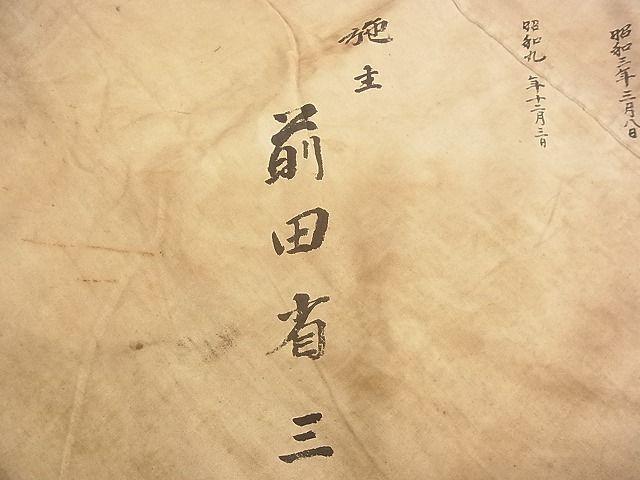 昭和三年三月八日
昭和九年十二月三日
施主
前田省三